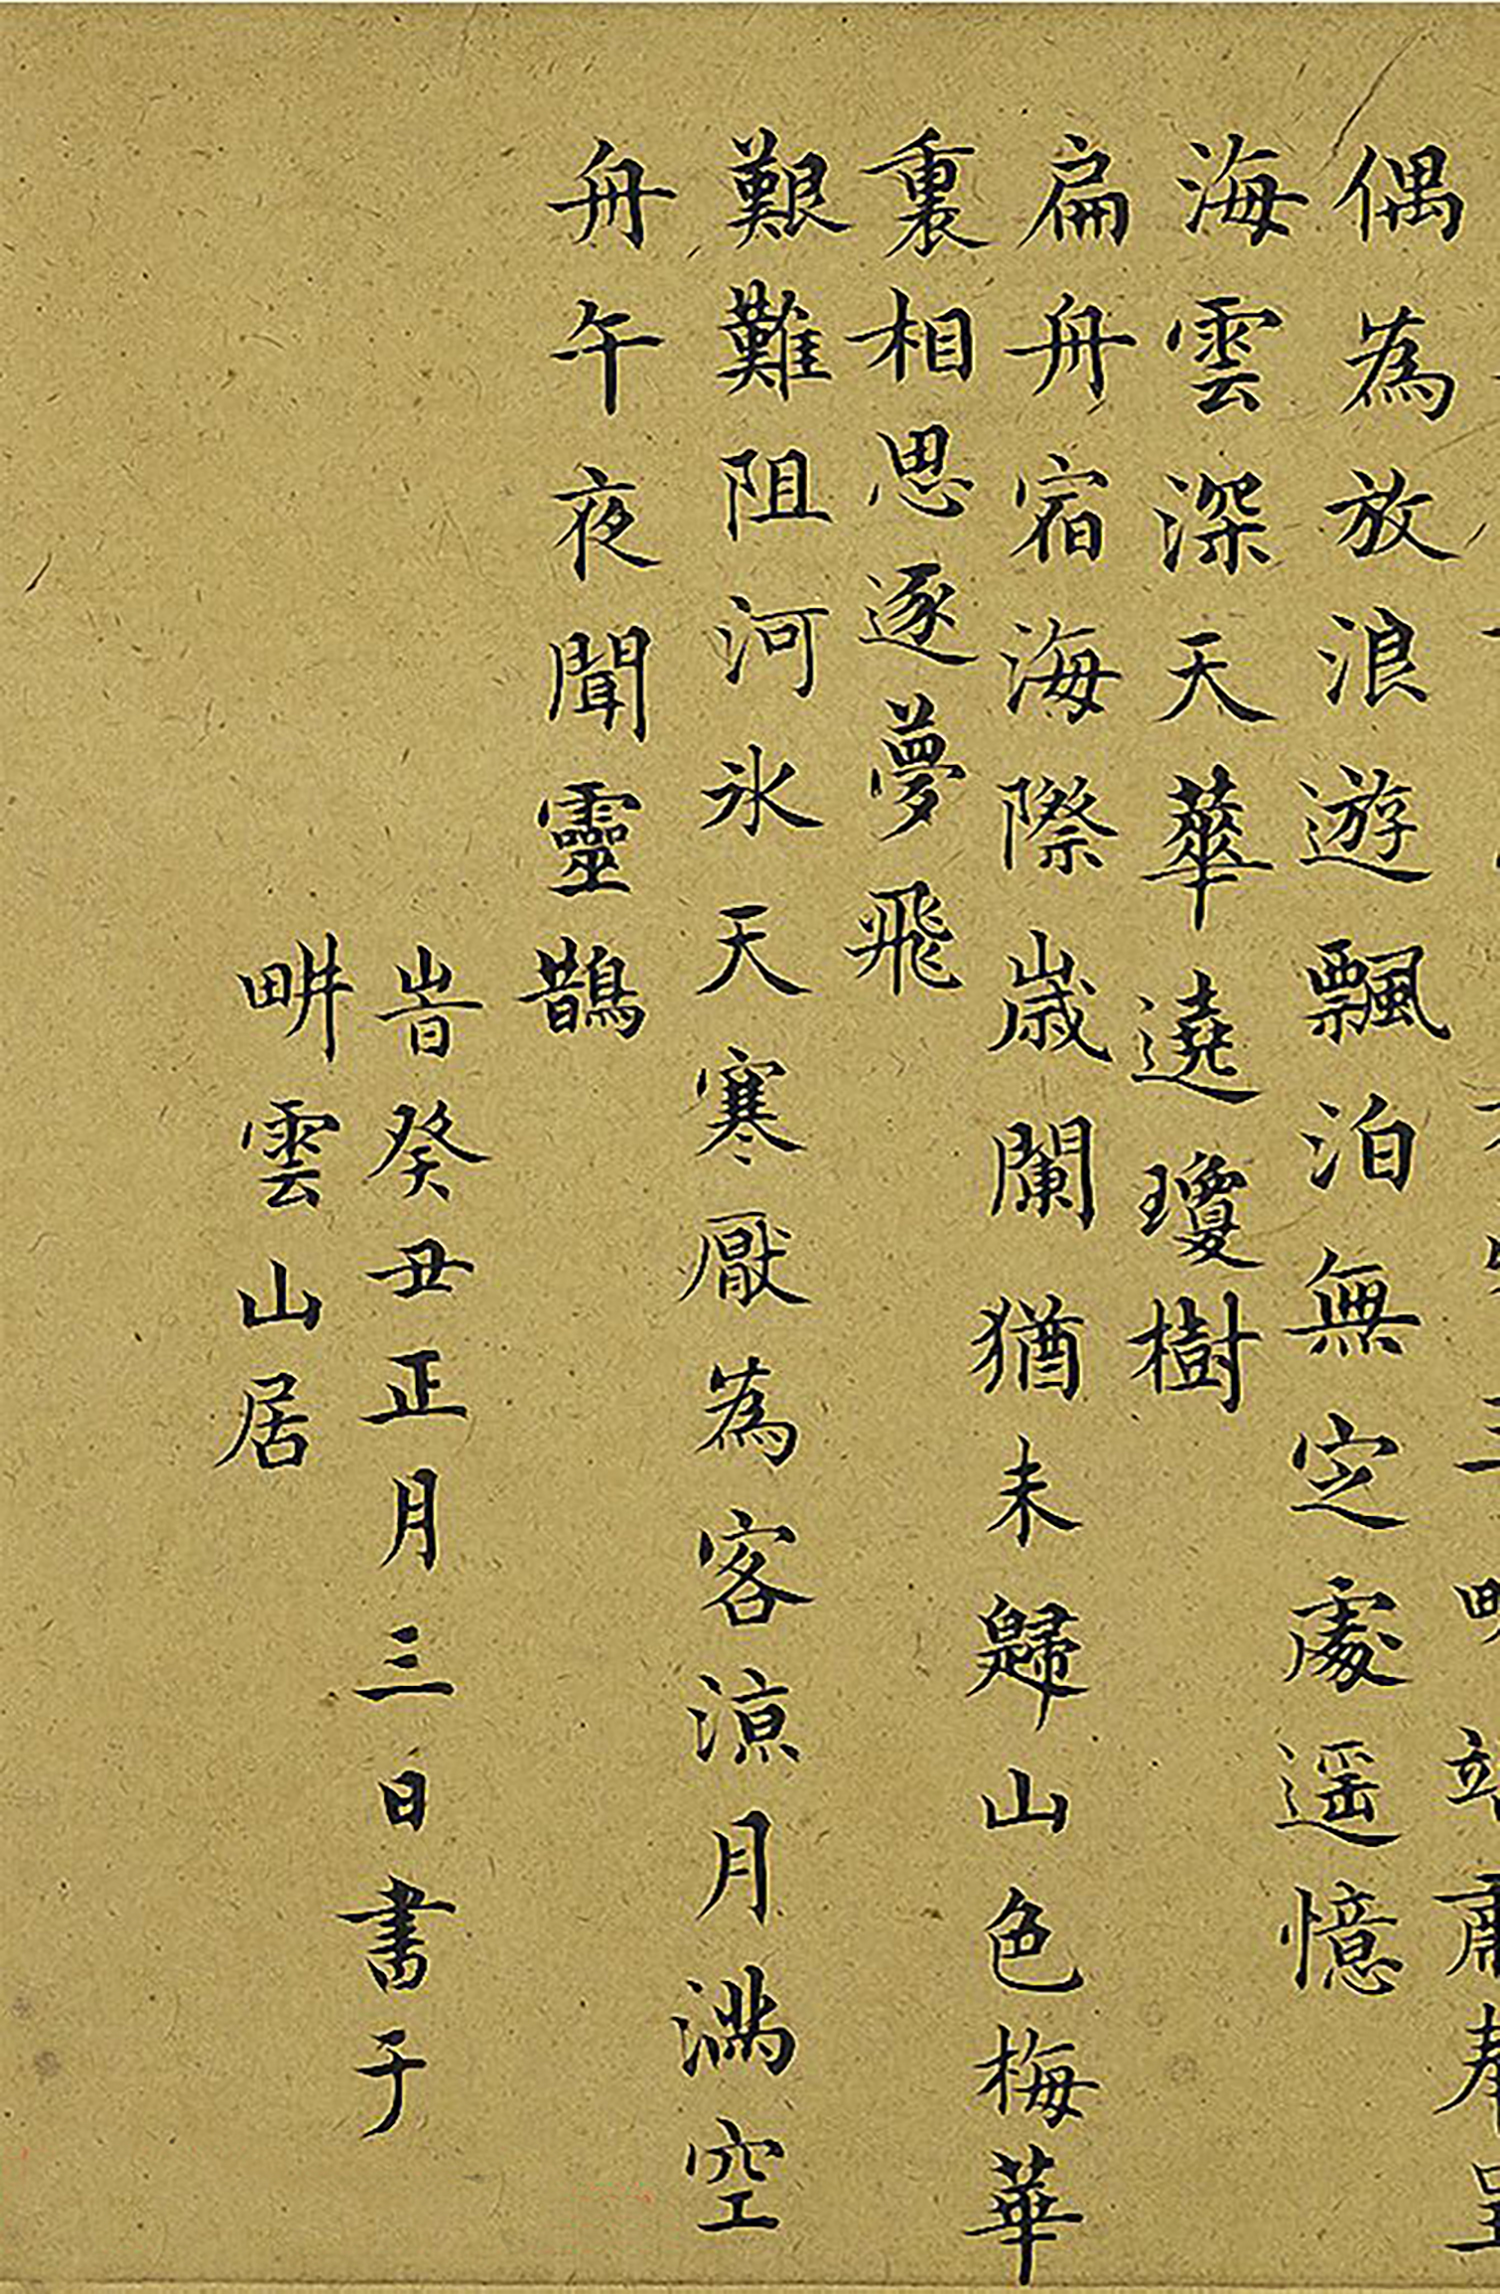 偶為放浪遊飄泊無定處遥憶
海雲深天華遶瓊樹
扁舟宿海際歲闌猶未歸山色梅華
裏相思逐夢飛
艱難阻河氷天寒厭為客涼月滿空
舟午夜聞靈鵲
旹癸丑正月三日書于
畊雲山居